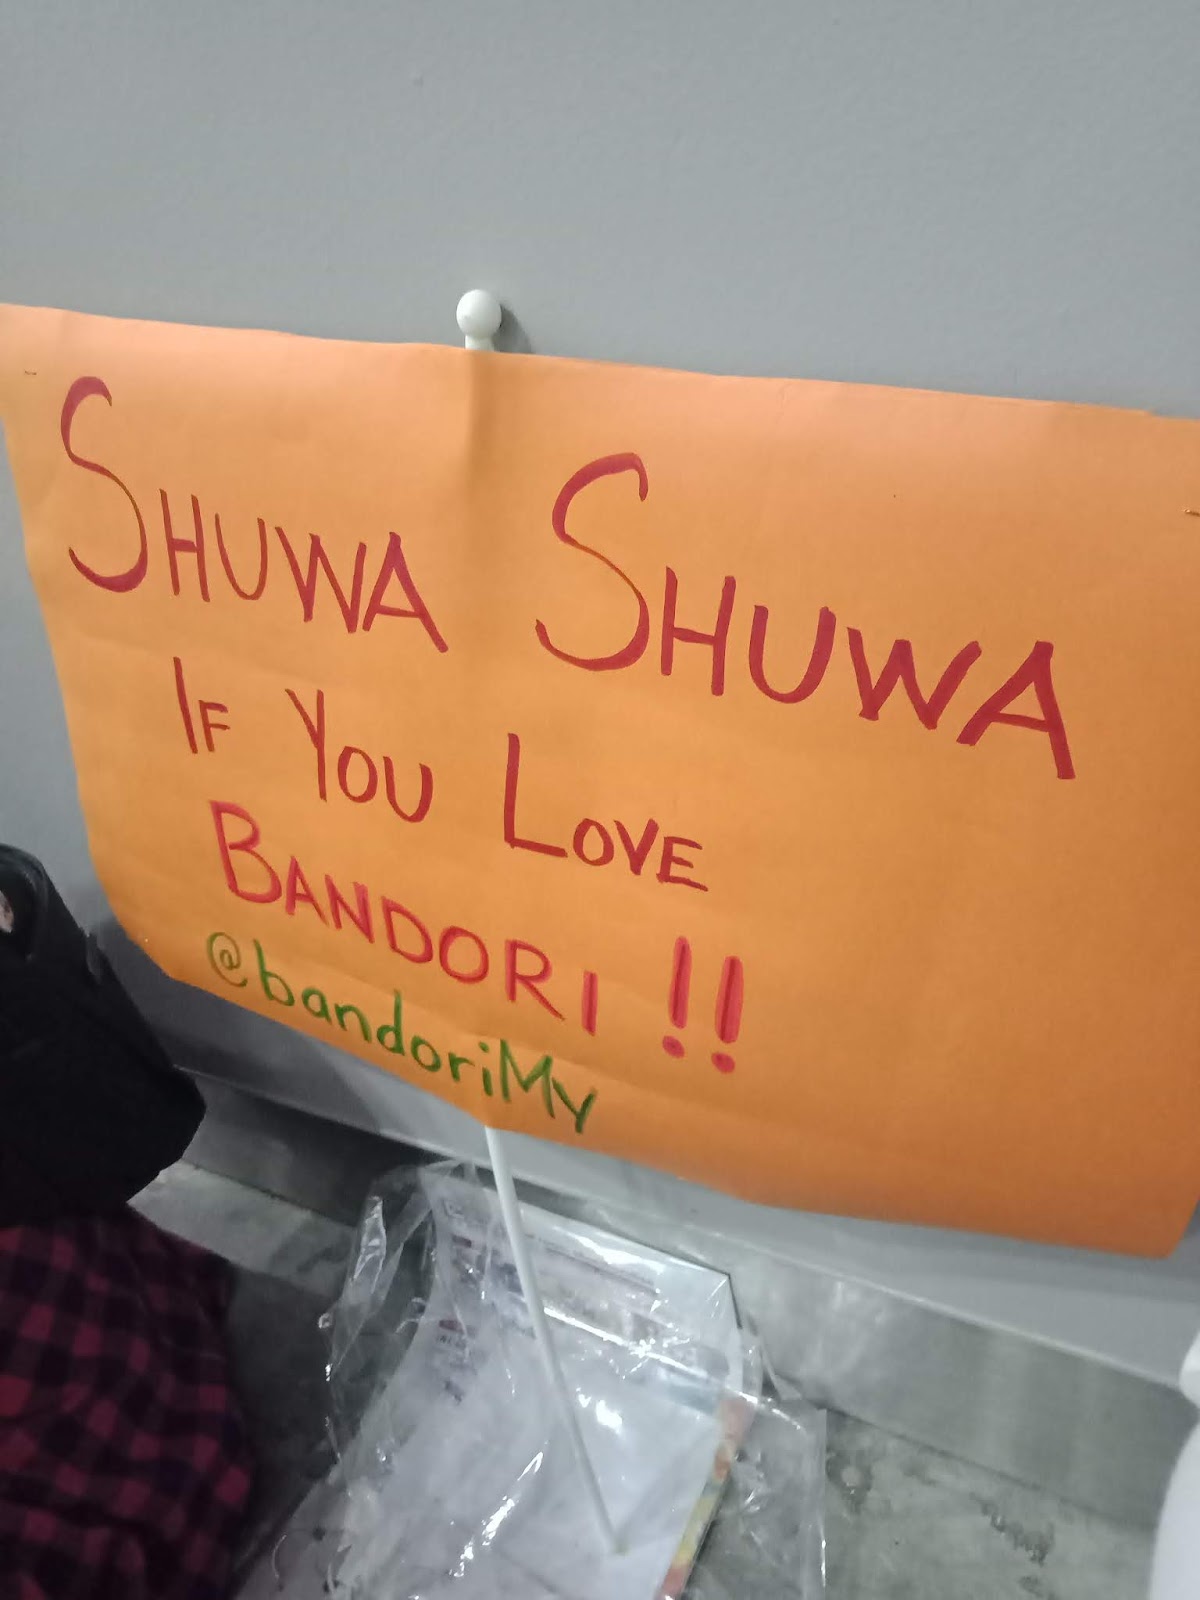 SHUWA SHUWA
IF YOU LOVE
BANDORI !!
@bandoriMY